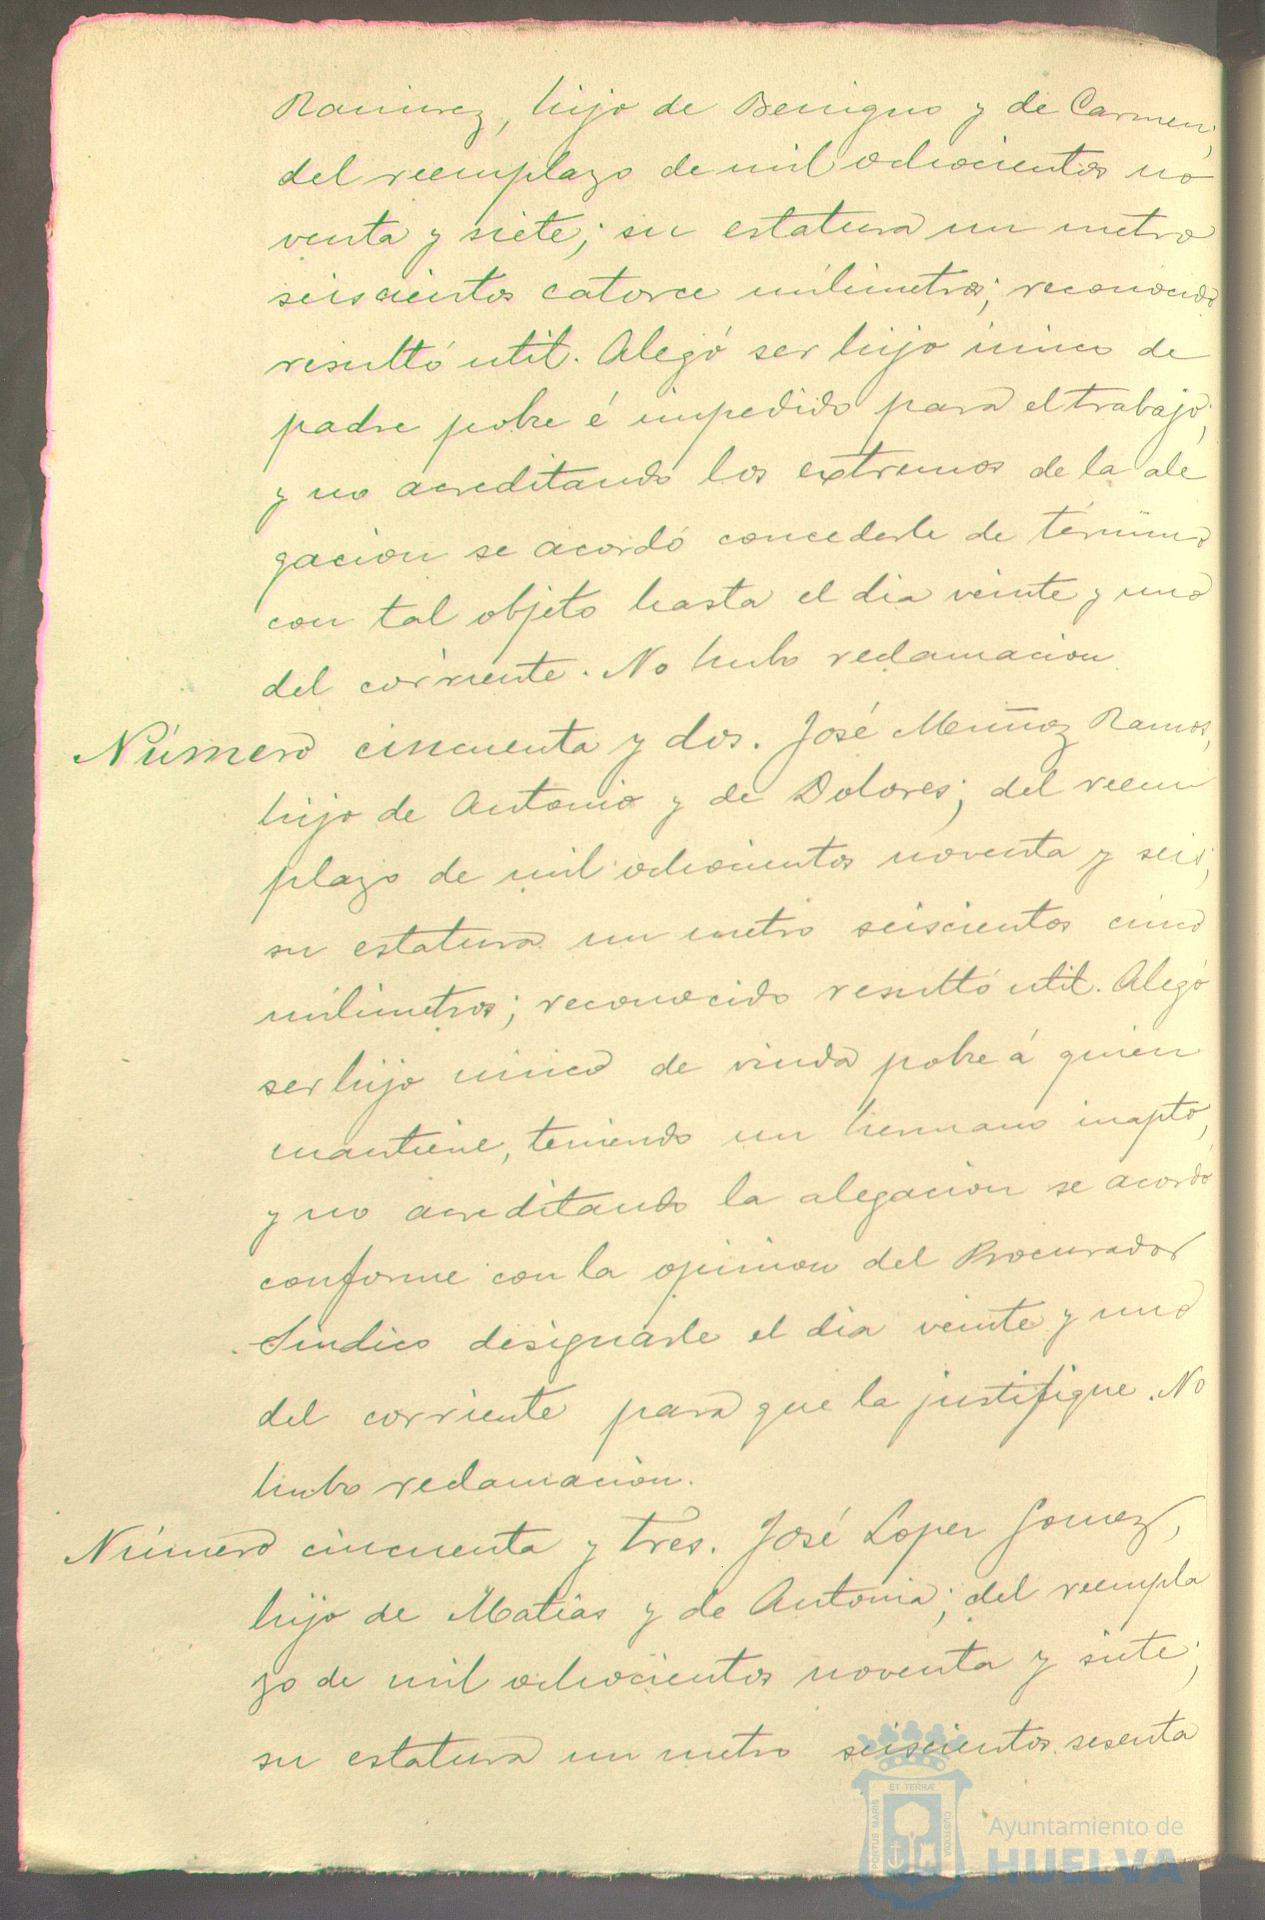 Ramirez, hijo de Benigno y de Carmen;
del reemplazo de mil ochocientos no
venta y siete; su estatura un metro
seiscientos catorce milimetros; reconocido
resultó util. Alegó ser hijo único de
padre pobre é impedido para el trabajo;
y no acreditando los extremos de la ale
gacion se acordó concederle de término
con tal objeto hasta el dia veinte y uno
del corriente. No hubo reclamacion
Número cincuenta y dos. José Muñoz Ramos,
hijo de Antonio y de Dolores; del reem
plazo de mil ochocientos noventa y seis;
su estatura un metro seiscientos cinco
milimetros; reconocido resultó util. Alegó
ser hijo único de viuda pobre á quien
mantiene, teniendo un hermano inapto,
y no acreditando la alegacion se acordó
conforme con la opinion del Procurador
Sindico designarle el dia veinte y uno
del corriente para que la justifique. No
hubo reclamacion.
Número cincuenta y tres. José Lopez Gomez,
hijo de Matias y de Antonia; del reempla
zo de mil ochocientos noventa y siete;
su estatura un metro seiscientos sesenta
ET TERRÆ
PORTUS MARIS
CUSTODIA
Ayuntamiento de
HUELVA